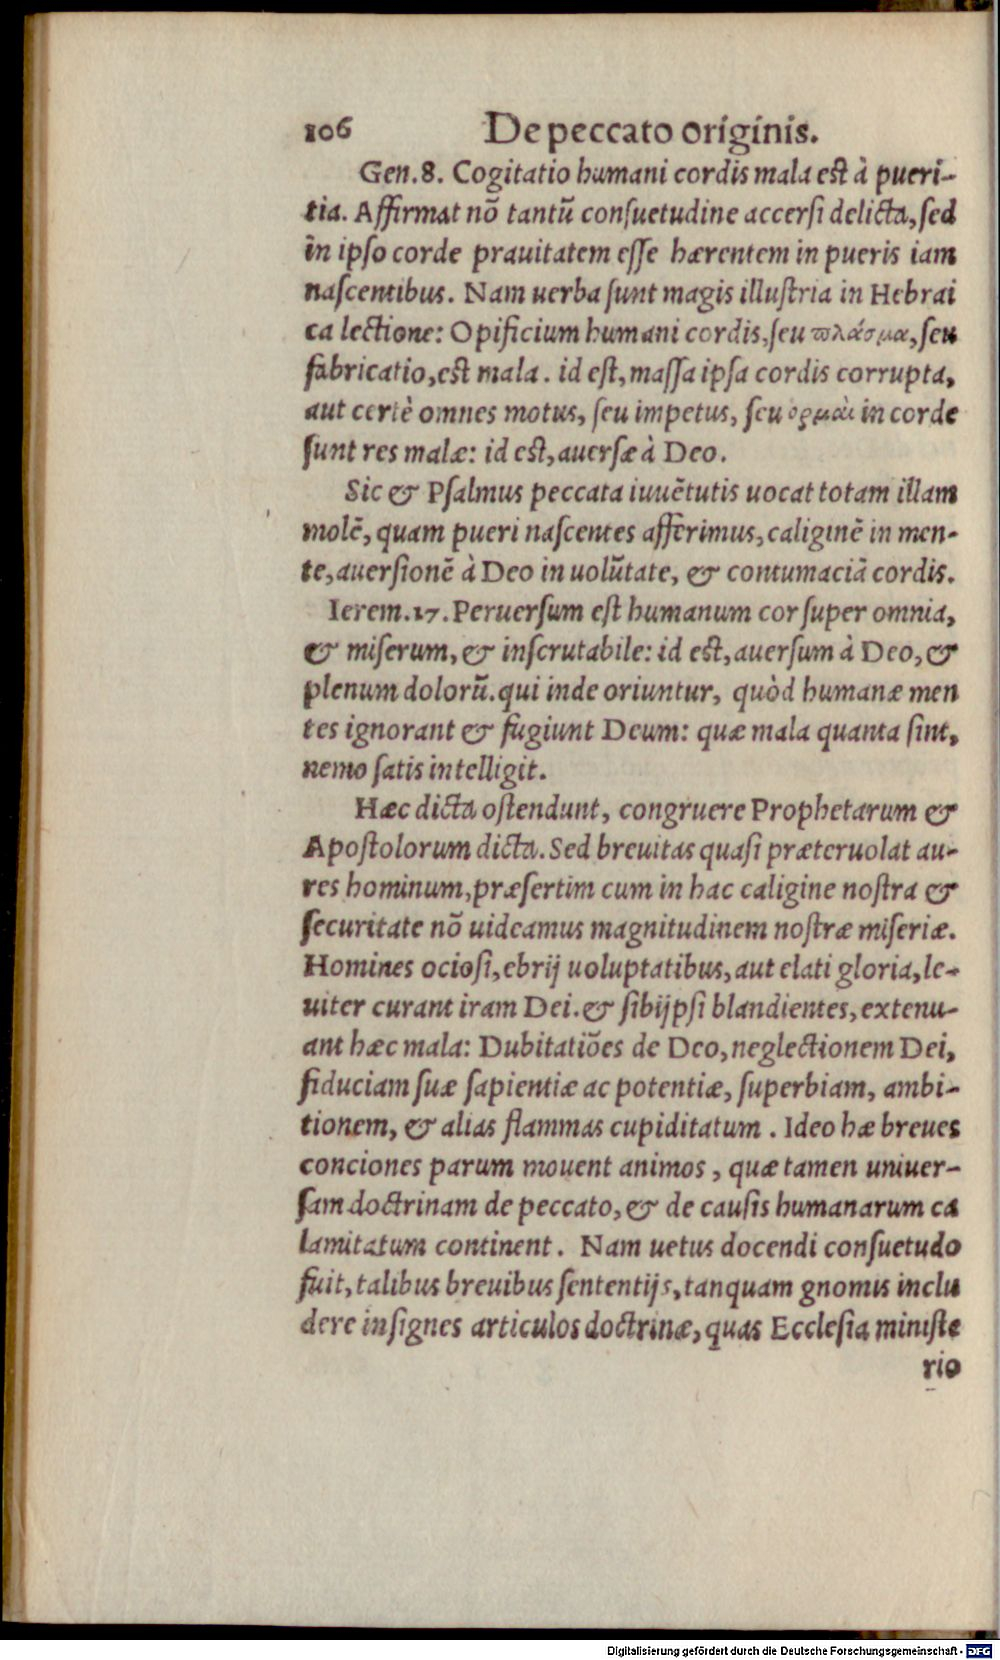 106 De peccato originis.
Gen.8. Cogitatio humani cordis mala est à pueri-
tia. Affirmat nõ tantũ consuetudine accersi delicta, sed
in ipso corde prauitatem esse hærentem in pueris iam
nascentibus. Nam uerba sunt magis illustria in Hebrai
ca lectione: Opificium humani cordis, seu πλάσμα, seu
fabricatio, est mala. id est, massa ipsa cordis corrupta,
aut certè omnes motus, seu impetus, seu ορμαὶ in corde
sunt res malæ: id est, auersæ à Deo.
Sic & Psalmus peccata iuuẽtutis uocat totam illam
molẽ, quam pueri nascentes afferimus, caliginẽ in men-
te, auersionẽ à Deo in uolũtate, & contumaciã cordis.
Ierem.17. Peruersum est humanum cor super omnia,
& miserum, & inscrutabile: id est, auersum à Deo, &
plenum dolorũ. qui inde oriuntur, quòd humanæ men
tes ignorant & fugiunt Deum: quæ mala quanta sint,
nemo satis intelligit.
Hæc dicta ostendunt, congruere Prophetarum &
Apostolorum dicta. Sed breuitas quasi præteruolat au-
res hominum, præsertim cum in hac caligine nostra &
securitate nõ uideamus magnitudinem nostræ miseriæ.
Homines ociosi, ebrij uoluptatibus, aut elati gloria, le-
uiter curant iram Dei. & sibijpsi blandientes, extenu-
ant hæc mala: Dubitatiões de Deo, neglectionem Dei,
fiduciam suæ sapientiæ ac potentiæ, superbiam, ambi-
tionem, & alias flammas cupiditatum. Ideo hæ breues
conciones parum mouent animos, quæ tamen uniuer-
sam doctrinam de peccato, & de causis humanarum ca
lamitatum continent. Nam uetus docendi consuetudo
fuit, talibus breuibus sententijs, tanquam gnomis inclu
dere insignes articulos doctrinæ, quas Ecclesia ministe
rio
Digitalisierung gefördert durch die Deutsche Forschungsgemeinschaft - DFG